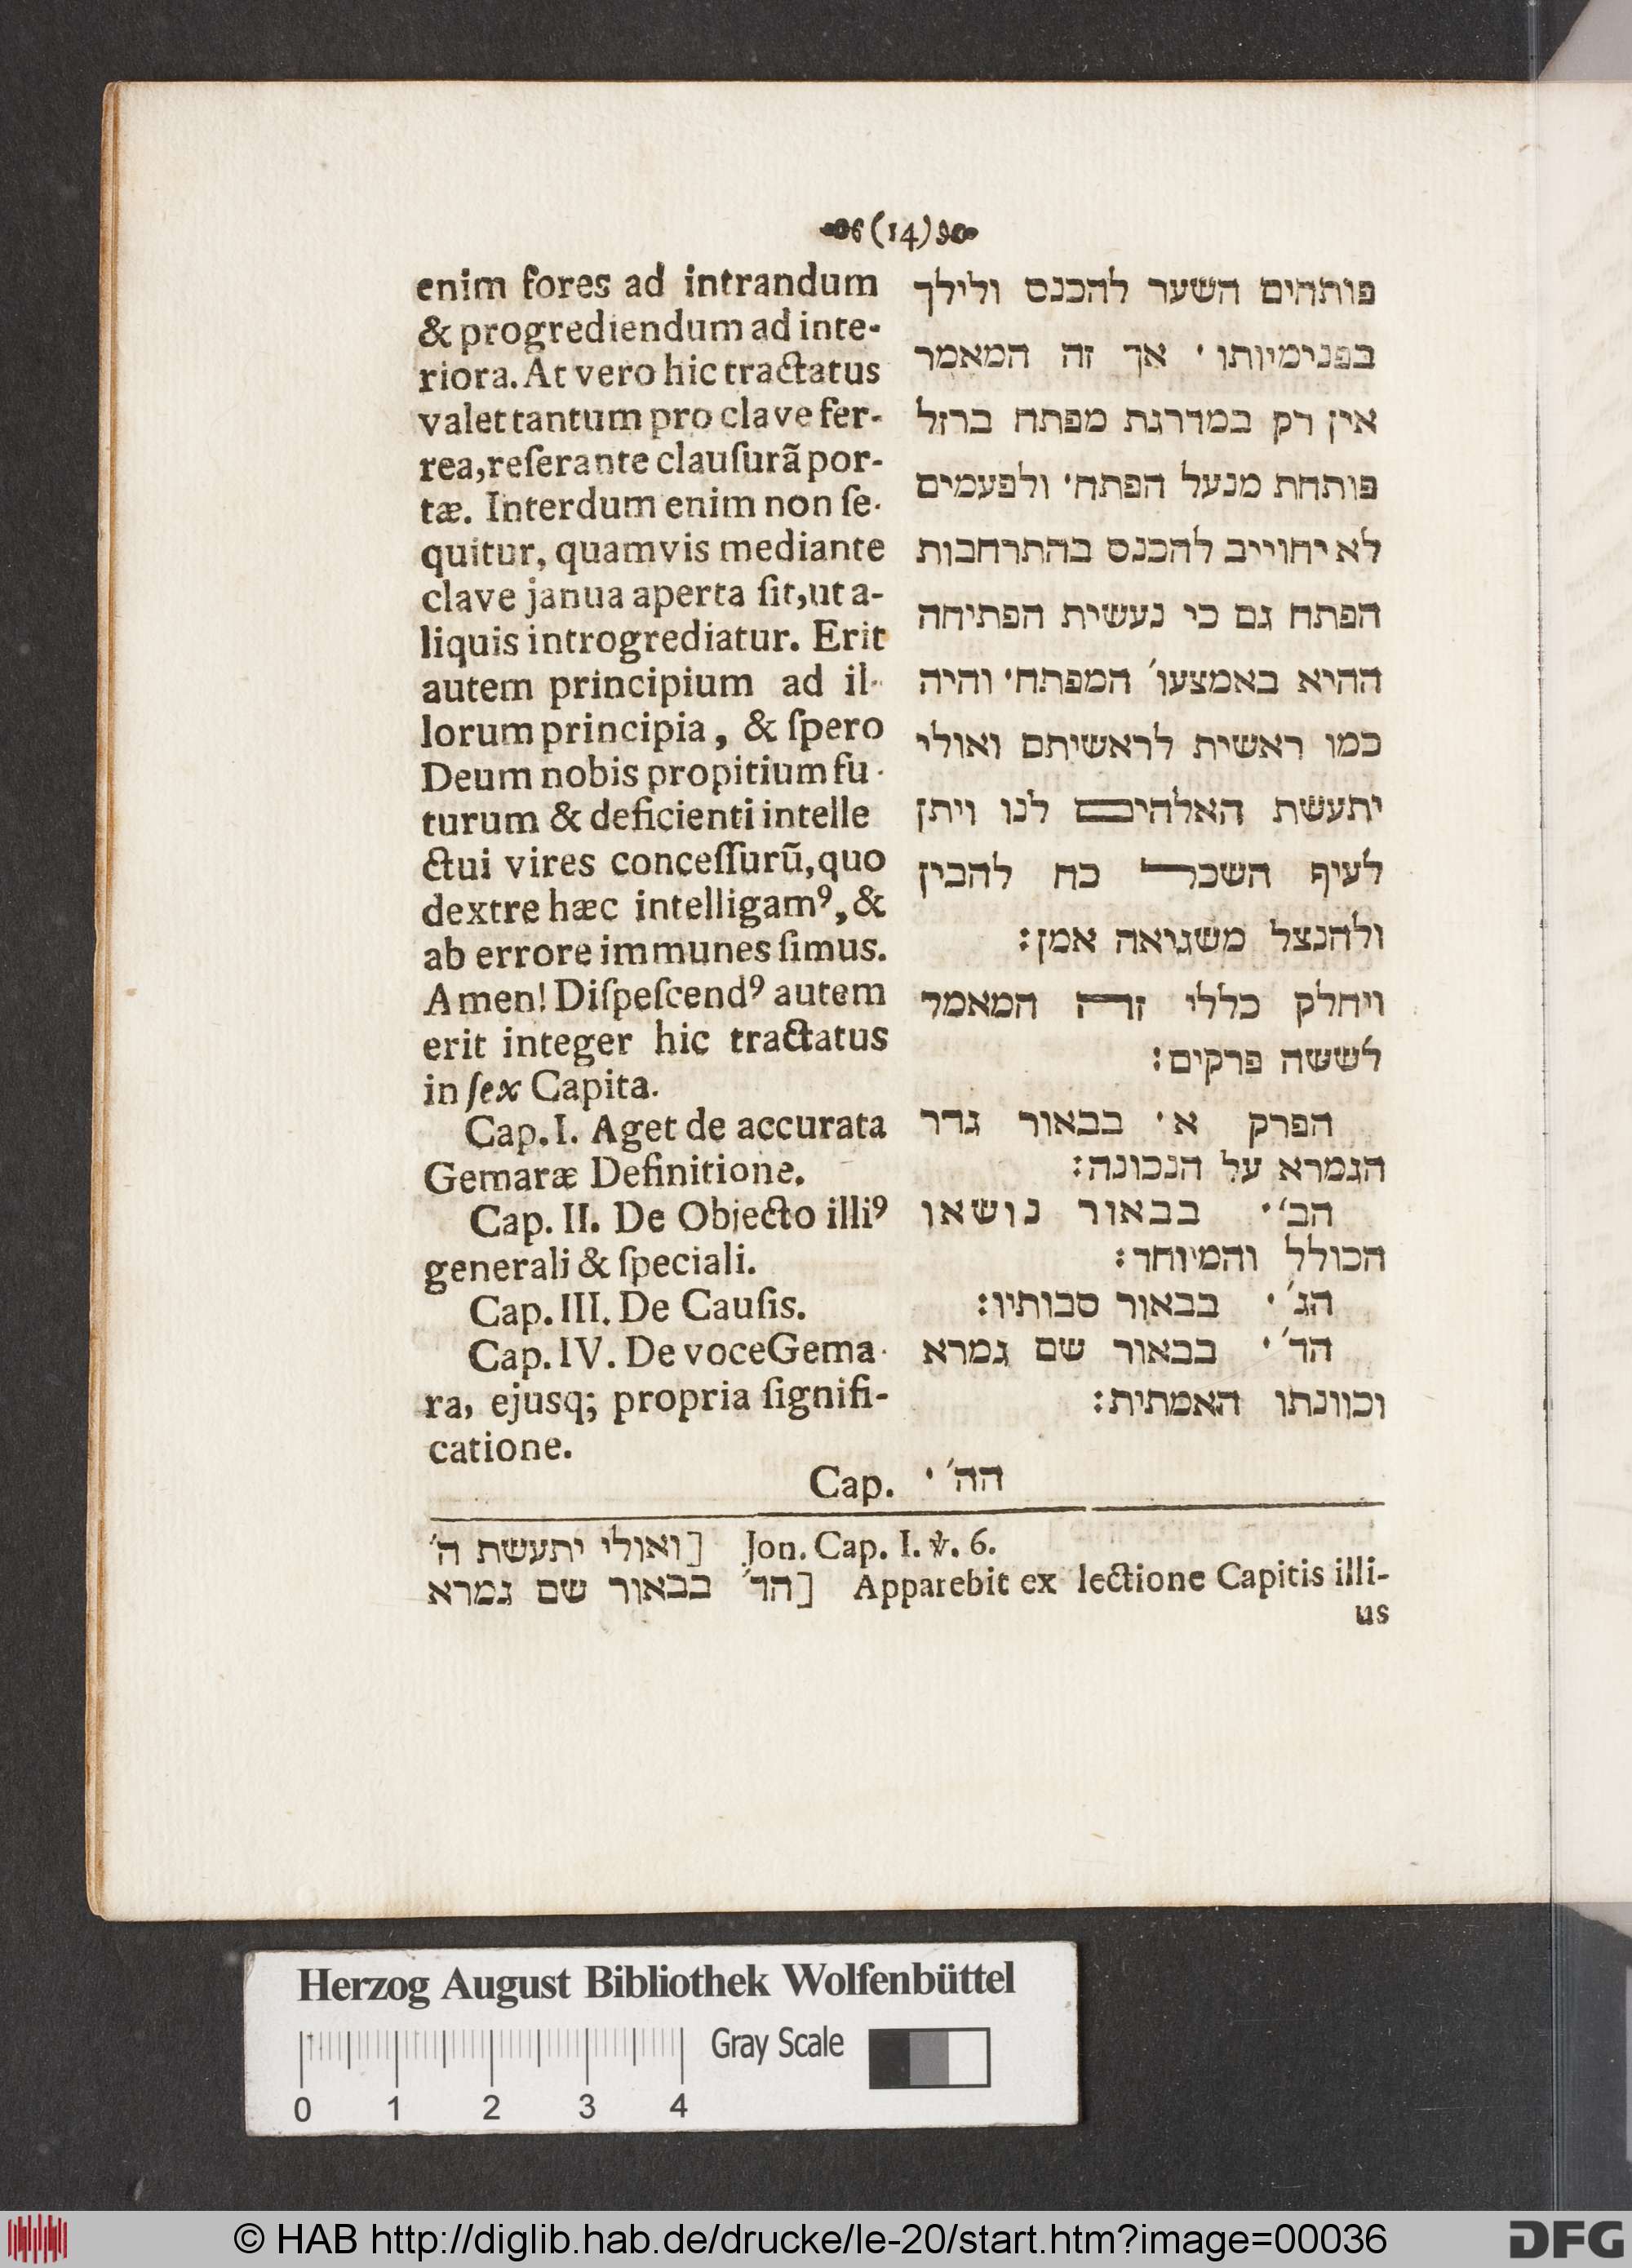 (14)
enim fores ad intrandum
& progrediendum ad inte-
riora. At vero hic tractatus
valet tantum pro clave fer-
rea, reſerante clauſurã por-
tæ. Interdum enim non ſe-
quitur, quamvis mediante
clave janua aperta ſit, ut a-
liquis introgrediatur. Erit
autem principium ad il-
lorum principia, & ſpero
Deum nobis propitium fu-
turum & deficienti intelle
ctui vires conceſſurũ, quo
dextre hæc intelligamꝰ, &
ab errore immunes ſimus.
Amen! Diſpeſcendꝰ autem
erit integer hic tractatus
in ſex Capita.
Cap. I. Aget de accurata
Gemaræ Definitione.
Cap. II. De Objecto illiꝰ
generali & ſpeciali.
Cap. III. De Cauſis.
Cap. IV. De voce Gema-
ra, ejusq; propria ſignifi-
catione.
Cap.
פותחים השער להכנס ולילך
בפנימיותו· אך זה המאמר
אין רק במדרגת מפתח ברזל
פותחת מנעל הפתח· ולפעמים
לא יחוייב להכנס בהתרחבות
הפתח גם כי נעשית הפתיחה
ההיא באמצעו׳ המפתח· והיה
כמו ראשית לראשיתם ואולי
יתעשת האלהים לנו ויתן
לעיף השכל כח להבין
ולהנצל משגיאה אמן:
ויחלק כללי זה המאמר
לששה פרקים:
הפרק א· בבאור גדר
הגמרא על הנכונה:
הב׳· בבאור נושאו
הכולל והמיוחד:
הג׳· בבאור סבותיו:
הד׳· בבאור שם גמרא
וכוונתו האמתית:
הה׳·
ואולי יתעשת ה׳] Jon. Cap. I. ℣. 6.
הד׳ בבאור שם גמרא] Apparebit ex lectione Capitis illi-
us
Herzog August Bibliothek Wolfenbüttel
Gray Scale
0 1 2 3 4
© HAB http://diglib.hab.de/drucke/le-20/start.htm?image=00036
DFG